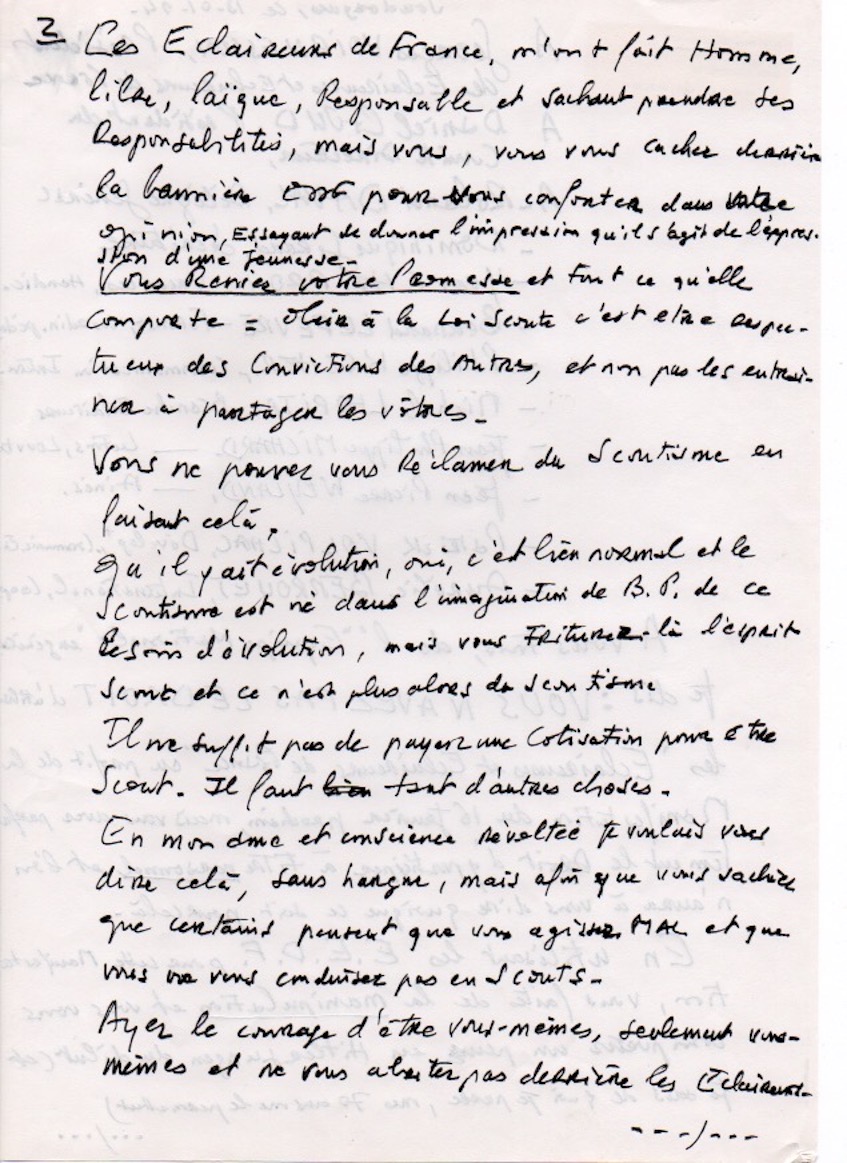 3 Les Eclaireurs de France, m'ont fait Homme,
libre, laïque, Responsable et sachant prendre ses
Responsabilités, mais vous, vous vous cachez derrière
la bannière EDF pour vous conforter dans votre
opinion, Essayant de donner l'impression qu'il s'agit de l'expres-
sion d'une jeunesse-
Vous Reniez votre Promesse et tout ce qu'elle
comporte = Obeir à la Loi Scoute c'est etre respec-
tueux des Convictions des Autres, et non pas les entrai-
ner à partager les vôtres-
Vous ne pouvez vous Réclamer du Scoutisme en
faisant celà.
Qu'il y ait évolution, oui, c'est bien normal et le
Scoutisme est né dans l'imagination de B.P. de ce
besoin d'évolution, mais vous FRITUREZ là l'esprit
Scout et ce n'est plus alors du scoutisme
Il ne suffit pas de payer une Cotisation pour être
Scout- Il faut bien tant d'autres choses-
En mon âme et conscience Révoltée je voulais vous
dire celà, sans hargne, mais afin que vous sachiez
que certains pensent que vous agissez MAL et que
vous ne vous conduisez pas en Scouts-
Ayez le courage d'être vous-mêmes, seulement vous-
mêmes et ne vous abritez pas derrière les Eclaireurs-
---/---